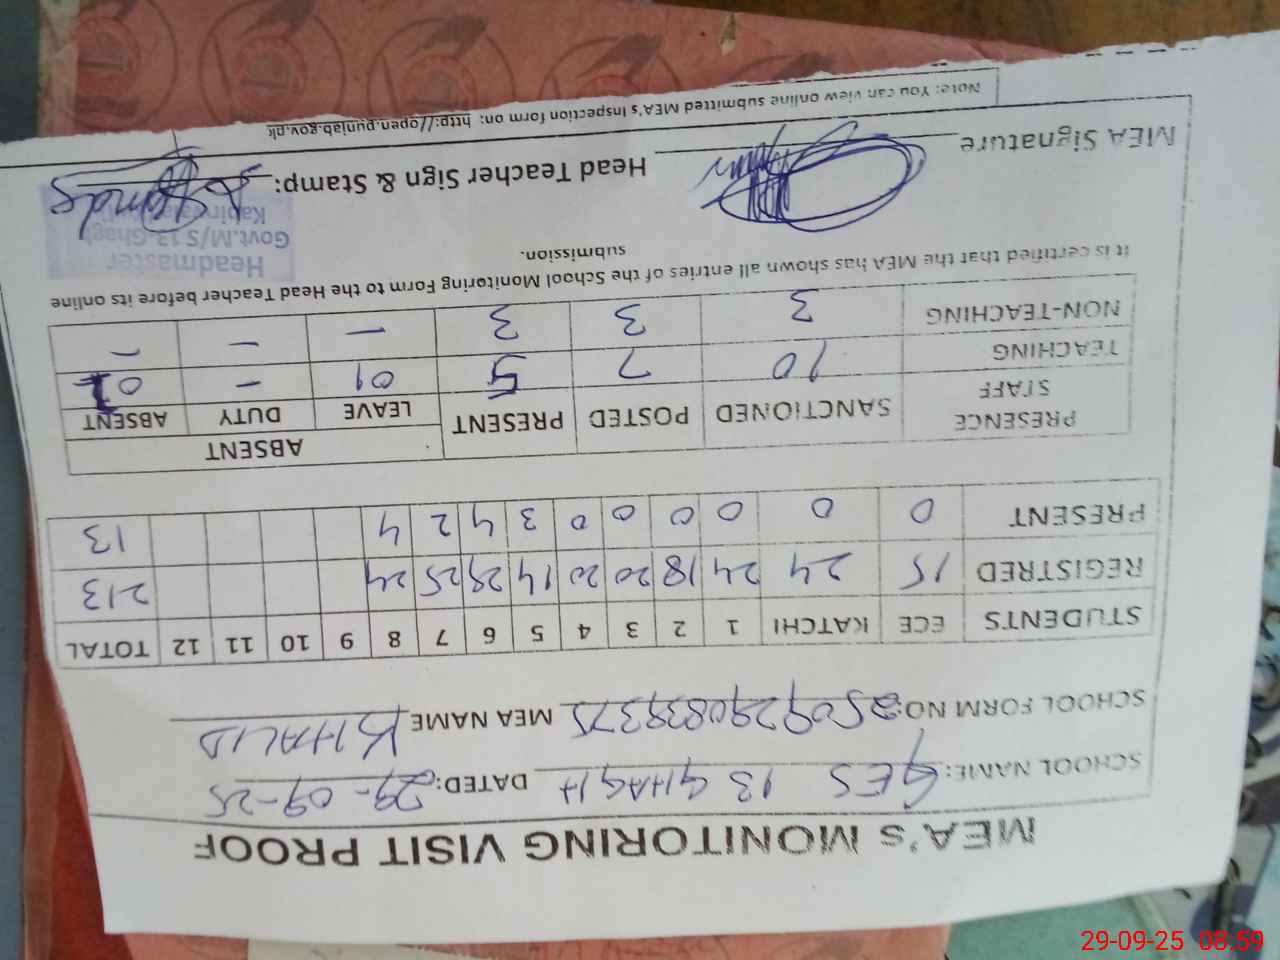 MEA's MONITORING VISIT PROOF
SCHOOL NAME: GES 13 GHAGH DATED: 29-09-25
SCHOOL FORM NO: 250929083937S MEA NAME KHALID
STUDENTS ECE KATCHI 1 2 3 4 5 6 7 8 9 10 11 12 TOTAL
REGISTRED 15 24 24 18 20 20 14 29 25 24 213
PRESENT 0 0 0 0 0 0 3 4 2 4 13
PRESENCE STAFF SANCTIONED POSTED PRESENT ABSENT
LEAVE DUTY ABSENT
TEACHING 10 7 5 01 - 01
NON-TEACHING 3 3 3 - - -
it is certified that the MEA has shown all entries of the School Monitoring Form to the Head Teacher before its online
submission.
Headmaster
Govt.M/S 13-Ghagh
MEA Signature Head Teacher Sign & Stamp:
Note: You can view online submitted MEA's Inspection form on: http://open.punjab.gov.pk
29-09-25 08:59